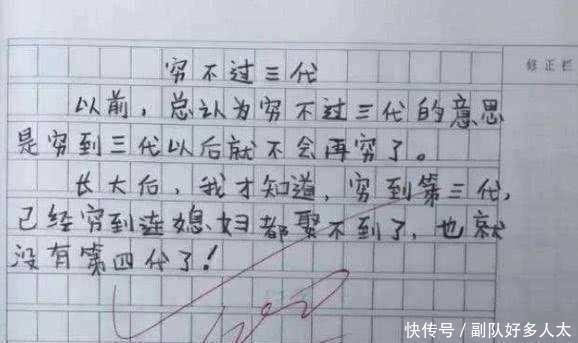 穷不过三代
修正栏
以前，总认为穷不过三代的意思
是穷到三代以后就不会再穷了。
长大后，我才知道，穷到第三代，
已经穷到连媳妇都娶不到了，也就
没有第四代了！
快传号／副队好多人太